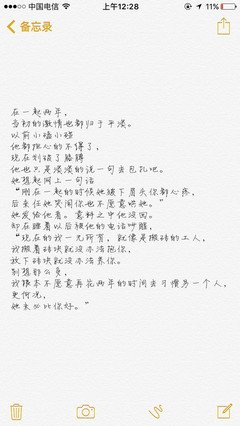 中国电信
上午12:28
11%
备忘录
在一起两年，
当初的激情也都归于平淡。
以前小磕小碰
他都担心的不得了，
现在划破了胳膊
他也只是淡淡的说一句去包扎吧。
她想起网上一句话
“刚在一起的时候她皱下眉头你都心疼，
后来任她哭闹你也不愿意哄她。”
她发给他看。意料之中他没回。
却在睡着以后被他的电话吵醒，
“现在的我一无所有，就像是搬砖的工人，
我搬着砖块就没办法抱你，
放下砖块就没办法养你。
别想那么多，
我根本不愿意再花两年的时间去习惯另一个人，
更何况，
她未必比你好。”